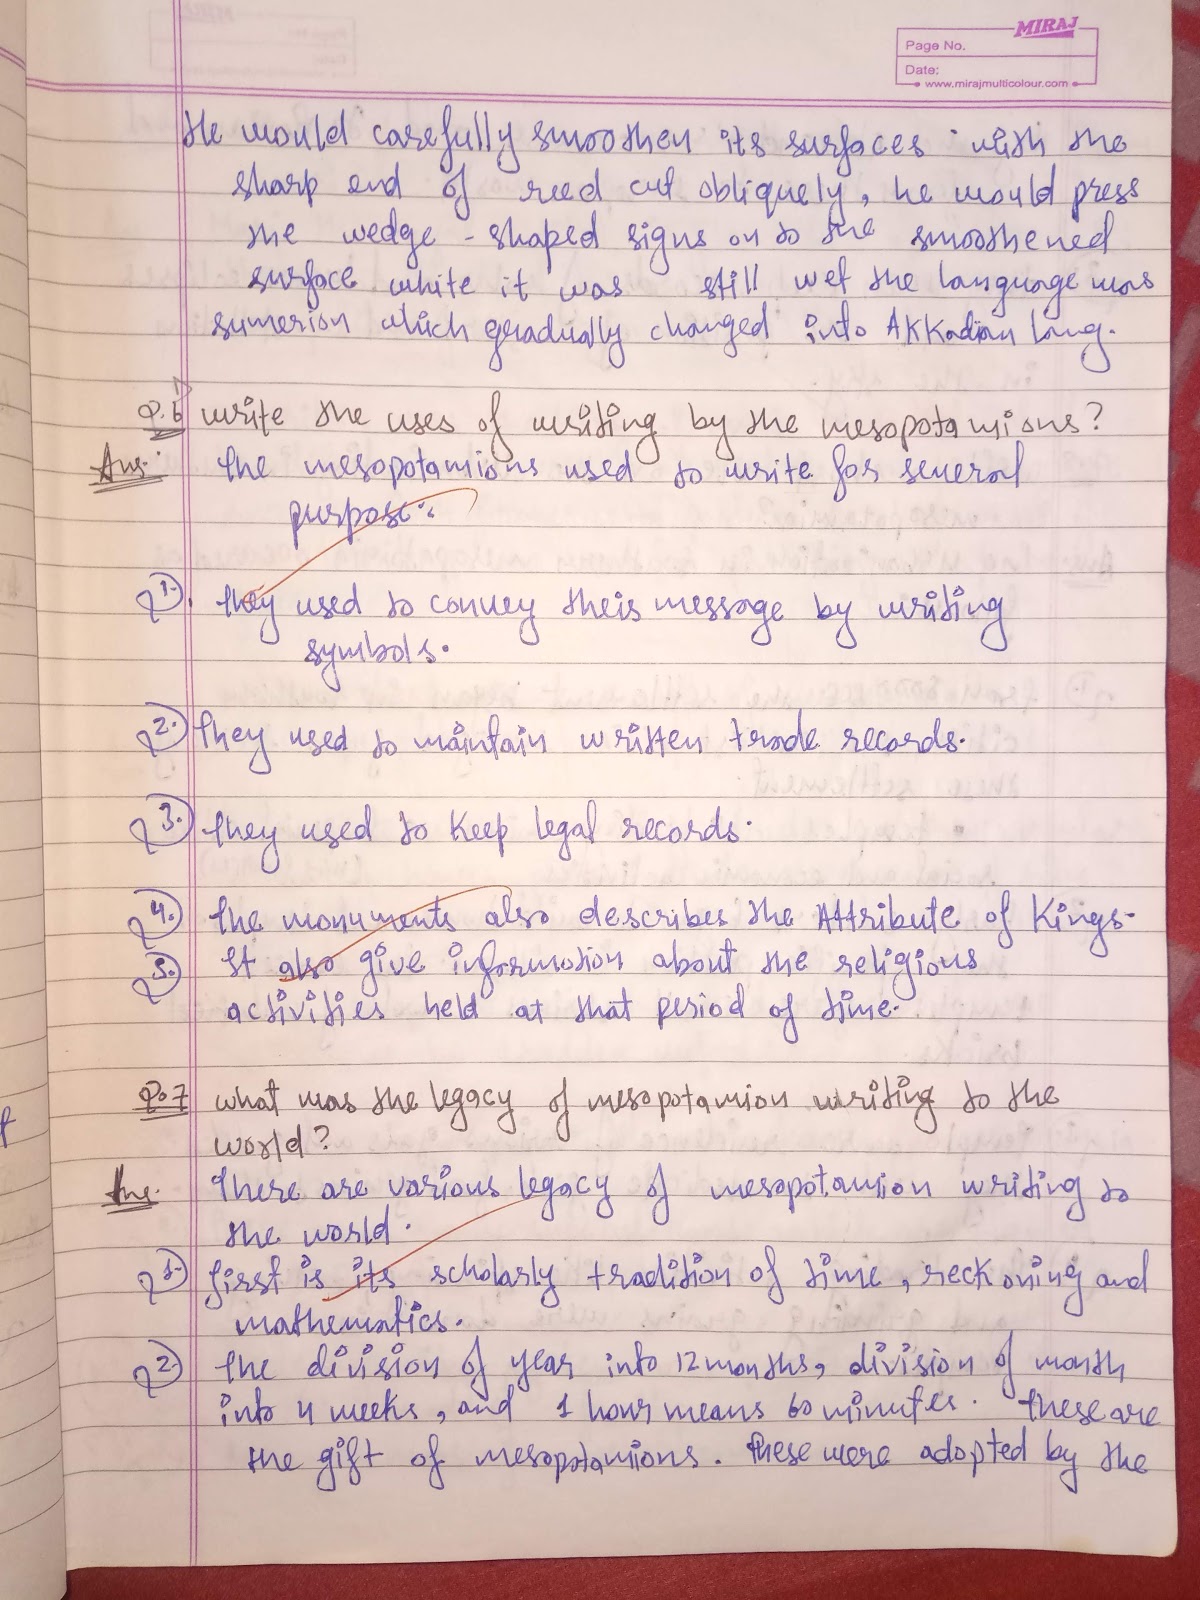 MIRAJ
Page No.
Date:
www.mirajmulticolour.com
He would carefully smoothen its surfaces with the
sharp end of reed cut obliquely, he would press
the wedge - shaped signs on to the smoothened
surface white it was still wet the language was
sumerion which geradually changed into AKKadian lang.
Q.6 write the uses of writing by the mesopotamions?
Ans: the mesopotamions used to write for several
purpose:
1. they used to convey theis message by writing
symbols.
2. they used to maintain written trade records.
3. they used to keep legal records.
4. the monuments also describes the Attribute of Kings.
5. It also give information about the religious
activities held at that period of time.
Q.7 what was the legacy of mesopotamion writing to the
world?
Ans. there are various legacy of mesopotamion writing to
the world.
1. first is its scholarly tradition of time, reckoning and
mathematics.
2. the division of year into 12 months, division of month
into 4 weeks, and 1 hour means 60 minutes. these are
the gift of mesopotamions. these were adopted by the